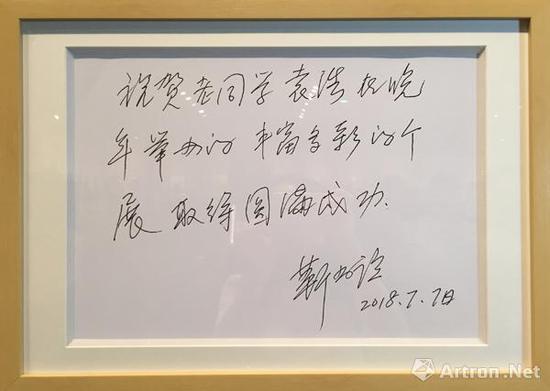 祝贺老同学袁浩在晚
年举办的丰富多彩的个
展取得圆满成功.
靳尚谊
2018.7.7日
Artron.Net